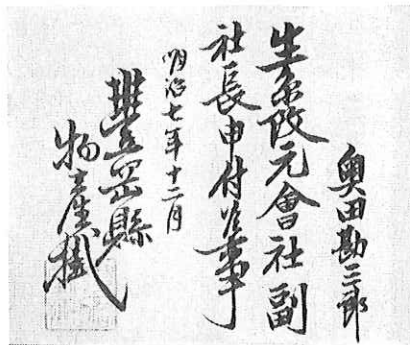 奥田勘三郎
生糸改元會社副
社長申付候事
明治七年十二月
豐岡縣
物産掛